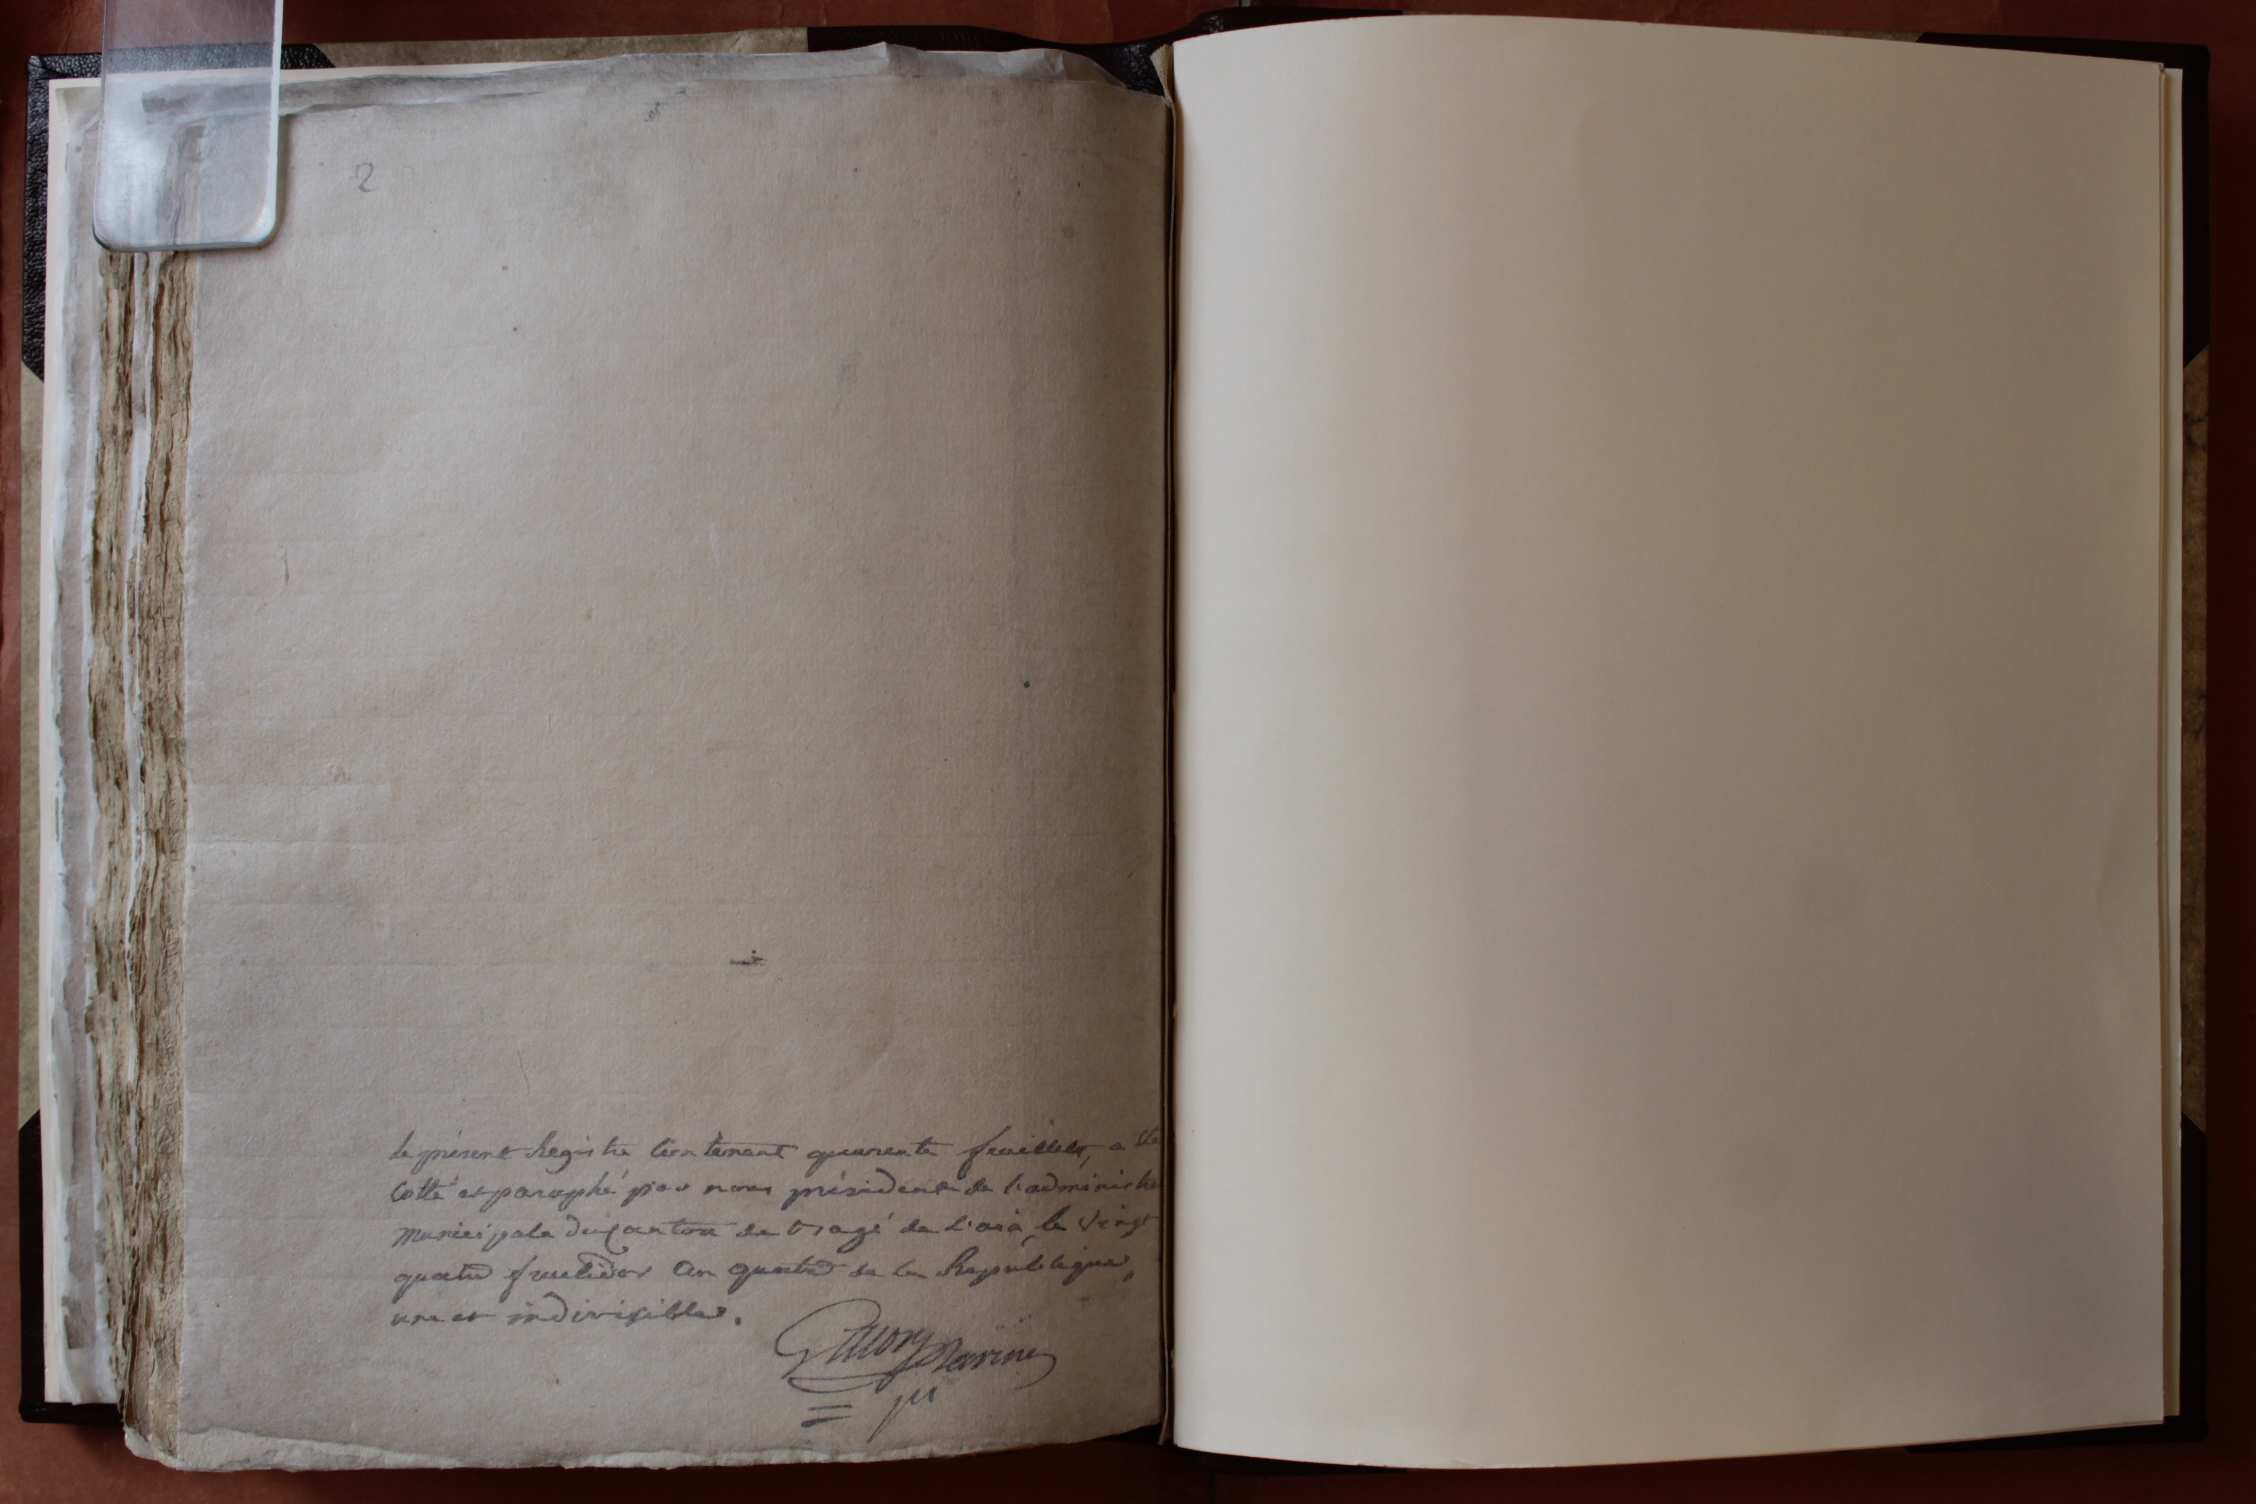 2
Le présent Registre Contenant quarante feuillets, a été
Cotté et paraphé par nous président de l'administra
Municipale du Canton de de L'oise, le vingt
quatre fructidor an quatre de la Republique,
une et indivisible.